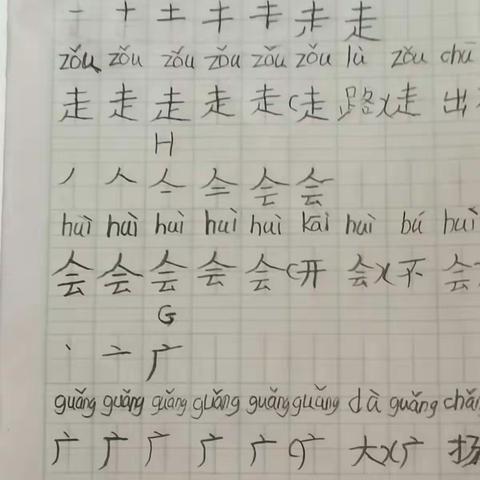 一 十 土 丰 走
zǒu zǒu zǒu zǒu zǒu zǒu lù zǒu chū
走 走 走 走 走 (走 路)(走 出
H
丿 人 会
huì huì huì huì huì kāi huì bú huì
会 会 会 会 会 (开 会)(不 会
G
丶 亠 广
guǎng guǎng guǎng guǎng guǎng guǎng dà guǎng chǎng
广 广 广 广 广 (广 大)(广 场